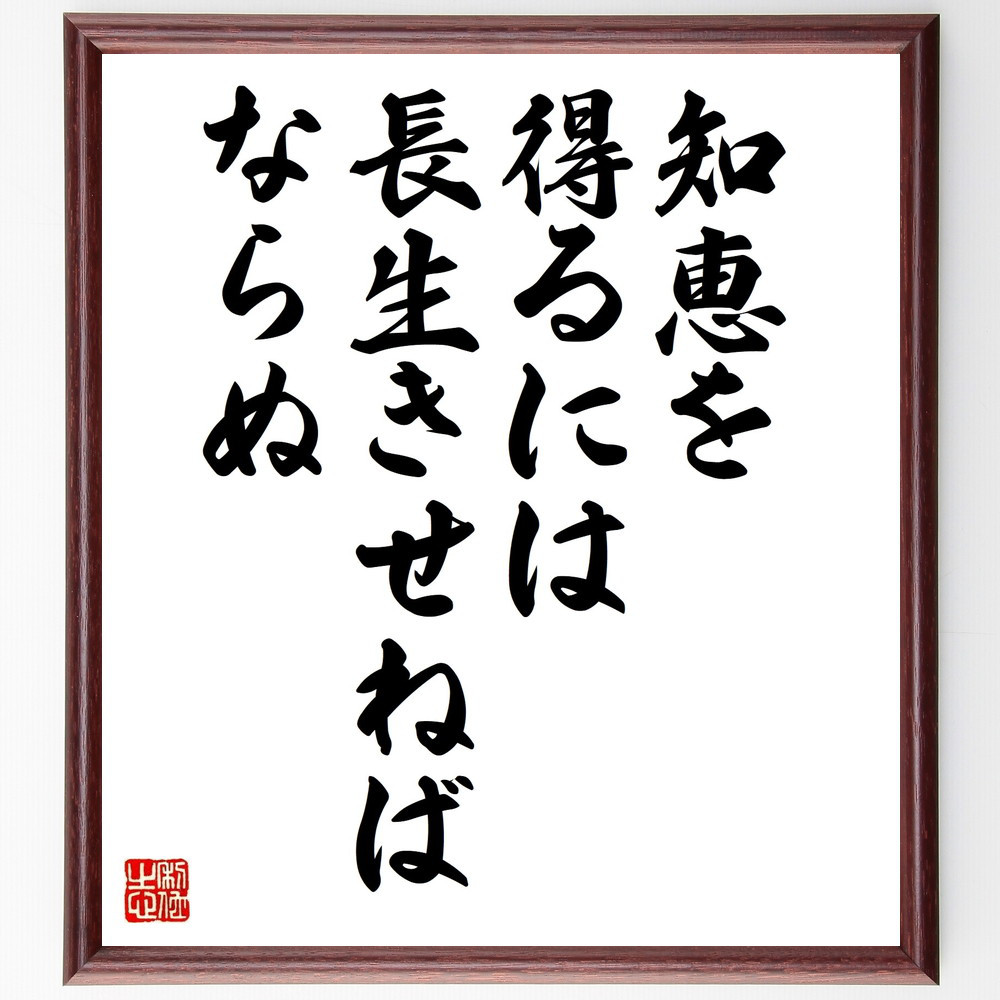 知恵を
得るには
長生きせねば
ならぬ